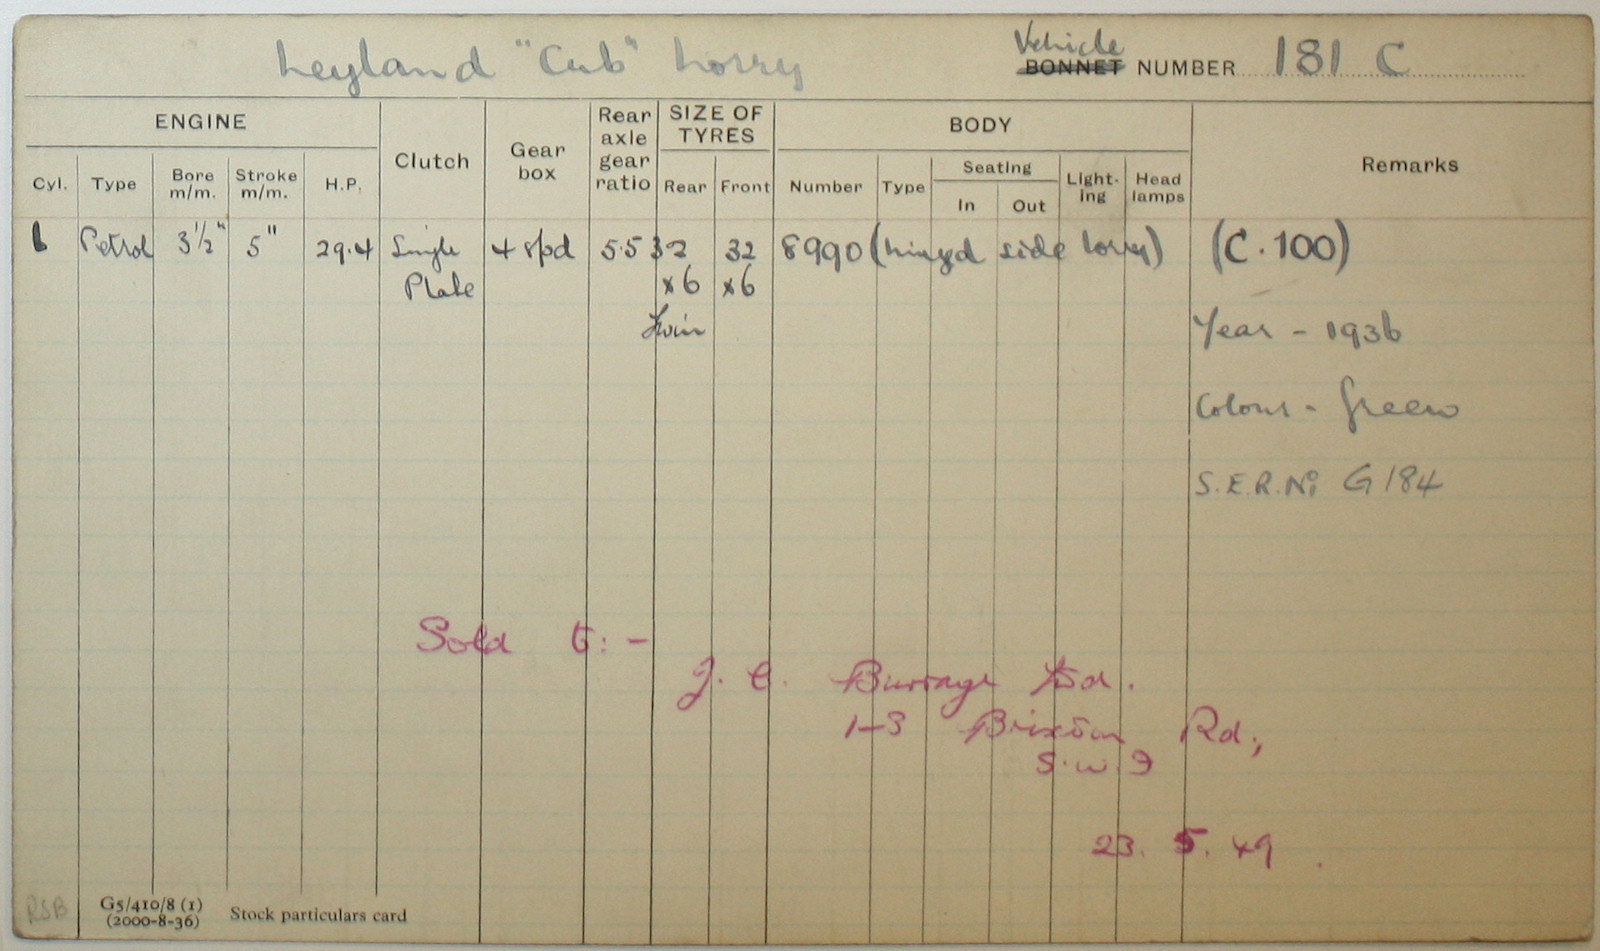 Leyland "Cub" Lorry
Vehicle
BONNET NUMBER 181 C
ENGINE
Clutch
Gear box
Rear axle gear ratio
SIZE OF TYRES
BODY
Remarks
Cyl. Type Bore m/m. Stroke m/m. H.P. Rear Front Number Type Seating In Out Light-ing Head lamps
6 Petrol 3½" 5" 29.4 Single 4 spd 5.5 32 32 8990 (hinged side lorry) (C.100)
Plate x6 x6
Twin
Year - 1936
Colour - Green
S.E.R. No G184
Sold to:-
J. C. Burrage Ltd.
1-3 Brixton Rd.,
S.W.9
23. 5. 49.
RSB
G5/410/8 (1)
(2000-8-36)
Stock particulars card